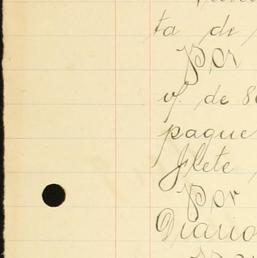 ta de
Por
v. de 80
paque
flete
Por
Diario
Por